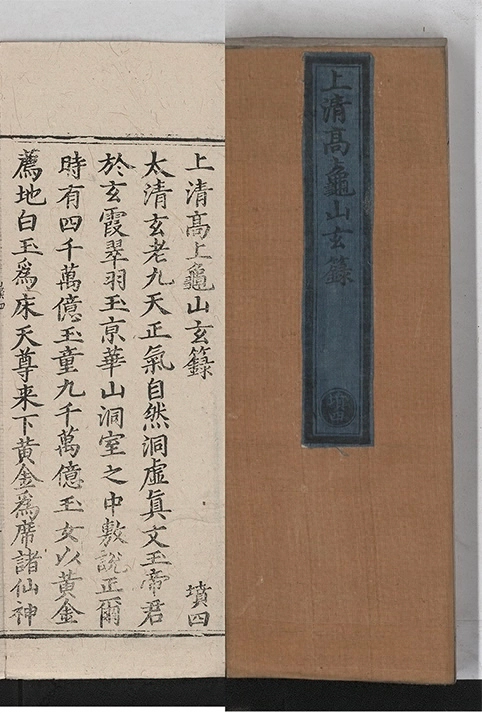 上清高上龜山玄籙
墳四
上清高上龜山玄籙 墳四
太清玄老九天正氣自然洞虛真文玉帝君
於玄霞翠羽玉京華山洞室之中敷說正爾
時有四千萬億玉童九千萬億玉女以黃金
薦地白玉為床天尊来下黃金為席諸仙神